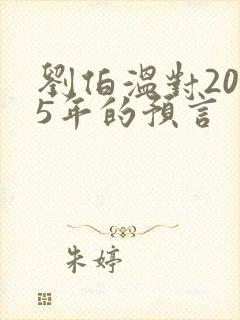 劉伯溫對20
5年的預言
朱婷